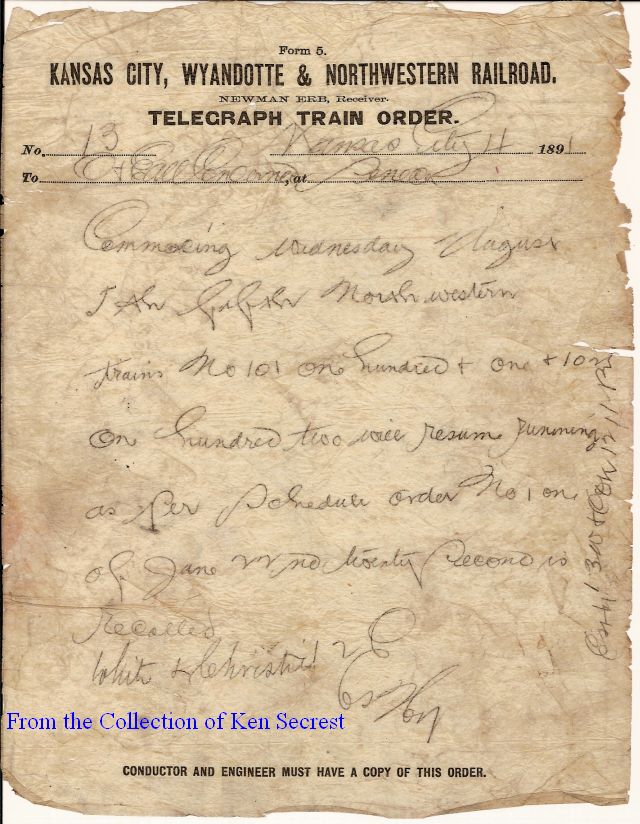 Form 5.
KANSAS CITY, WYANDOTTE & NORTHWESTERN RAILROAD.
NEWMAN ERB, Receiver.
TELEGRAPH TRAIN ORDER.
No. 13 Kansas City 4 1891
To C & at
Commencing wednesday August
5th fifth Northwestern
trains No 101 one hundred & one & 102
one hundred two will resume running
as per schedule order No 1 one
of June 22nd twenty second is
recalled
White & Christie
From the Collection of Ken Secrest
CONDUCTOR AND ENGINEER MUST HAVE A COPY OF THIS ORDER.